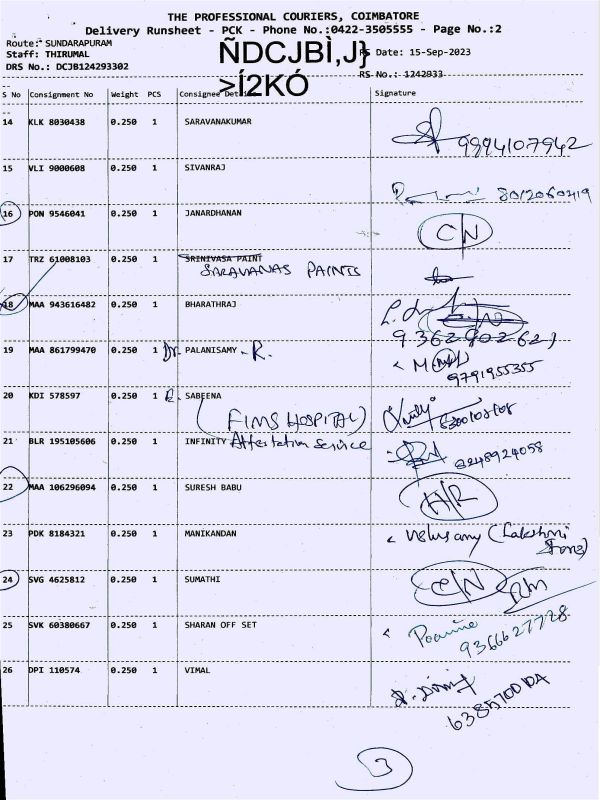 THE PROFESSIONAL COURIERS, COIMBATORE
Delivery Runsheet - PCK - Phone No.:0422-3505555 - Page No.:2
Route: SUNDARAPURAM
Staff: THIRUMAL ÑDCJBÌ,J} Date: 15-Sep-2023
DRS No.: DCJB124293302 >Í2KÓ RS No.: 1242933
S No Consignment No Weight PCS Consignee Details Signature
14 KLK 8030438 0.250 1 SARAVANAKUMAR 9994107942
15 VLI 9000608 0.250 1 SIVANRAJ 8012060419
16 PON 9546041 0.250 1 JANARDHANAN C/N
17 TRZ 61008103 0.250 1 SRINIVASA PAINT
SARAVANAS PAINTS
18 MAA 943616482 0.250 1 BHARATHRAJ
19 MAA 861799470 0.250 1 Dr. PALANISAMY - R.
9791955355
20 KDI 578597 0.250 1 SABEENA
(FIMS HOSPITAL)
21 BLR 195105606 0.250 1 INFINITY Attestation Service
8248924058
22 MAA 106296094 0.250 1 SURESH BABU H/R
23 PDK 8184321 0.250 1 MANIKANDAN Velusamy (Lakshmi
24 SVG 4625812 0.250 1 SUMATHI C/N
25 SVK 60380667 0.250 1 SHARAN OFF SET
9366627728
26 DPI 110574 0.250 1 VIMAL
3